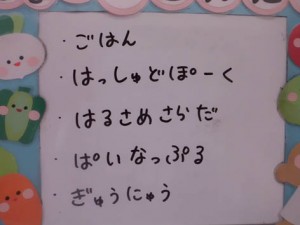 ・ごはん
・はっしゅどぽーく
・はるさめさらだ
・ぱいなっぷる
・ぎゅうにゅう